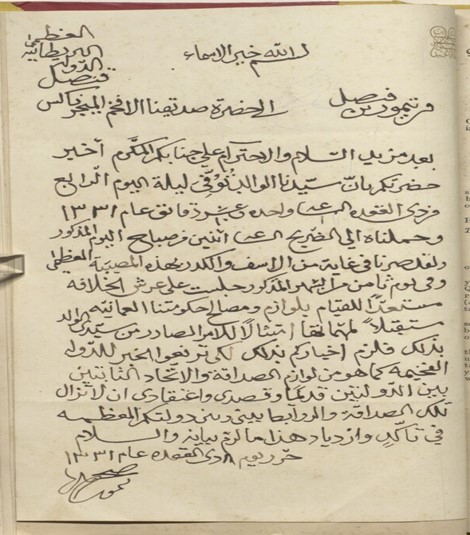 الله خير الاسماء
العظمى
البريطانية
الدولة
قنصل
من تيمور بن فيصل
الى حضرة صديقنا الافخم الميجر ناكس
بعد مزيد السلام والاحترام على جنابكم المكرم أخبر
حضرتكم بأن سيدنا الوالد تُوُفّي ليلة اليوم الرابع
من ذي القعده الساعة واحده وعشر دقائق عام ١٣٣١
وحملناه الى الضريح الساعة اثنين من صباح اليوم المذكور
ولقد صرنا في غاية من الاسف والكدر بهذه المصيبة العظمى
وفي يوم ثامن من الشهر المذكور جلست على عرش الخلافه
مستعداً للقيام بلوازم ومصالح حكومتنا العمانيه
مستقبلاً لمهامها امتثالاً للامر الصادر من سيدي الوالد
بذلك فلزم أخباركم بذلك لكي ترفعوا الخبر للدوله
الفخيمه كما هو من لوازم الصداقة والاتحاد الثابتين
بين الدولتين قديماً وقصدى واعتقادى ان لا تزال
تلك الصداقة والروابط بينى وبين دولتكم العظيمه
في تأكد وازدياد هذا ما لزم بيانه والسلام
حرر يوم ٨ ذي القعده عام ١٣٣١
صحيح
تيمور